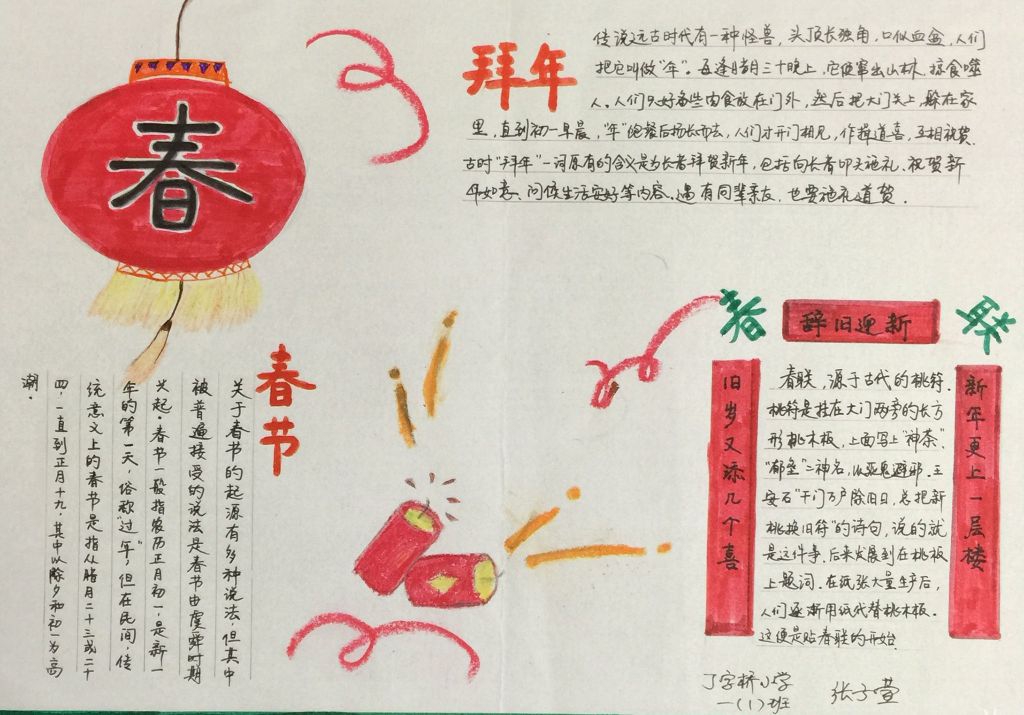 春
拜年
传说远古时代有一种怪兽，头顶长独角，口似血盆，人们
把它叫做“年”。每逢腊月三十晚上，它便窜出山林，掠食噬
人。人们只好备些肉食放在门外，然后把大门关上，躲在家
里，直到初一早晨，“年”饱餐后扬长而去，人们才开门相见，作揖道喜，互相祝贺.
古时“拜年”一词原有的含义是为长者拜贺新年，包括向长者叩头施礼、祝贺新
年如意、问候生活安好等内容。遇有同辈亲友，也要施礼道贺.
春节
关于春节的起源有多种说法，但其中
被普遍接受的说法是春节由虞舜时期
兴起。春节一般指农历正月初一，是新一
年的第一天，俗称“过年”，但在民间，传
统意义上的春节是指从腊月二十三或二十
四，一直到正月十九，其中以除夕和初一为高
潮。
春联
辞旧迎新
旧岁又添几个喜
新年更上一层楼
春联，源于古代的桃符.
桃符是挂在大门两旁的长方
形桃木板，上面写上“神荼”
“郁垒”二神名，以驱鬼避邪.王
安石“千门万户曈旧日，总把新
桃换旧符”的诗句，说的就
是这件事，后来发展到在桃板
上题词.在纸张大量生产后，
人们逐渐用纸代替桃木板.
这便是贴春联的开始
丁字桥小学
一(1)班
张子萱